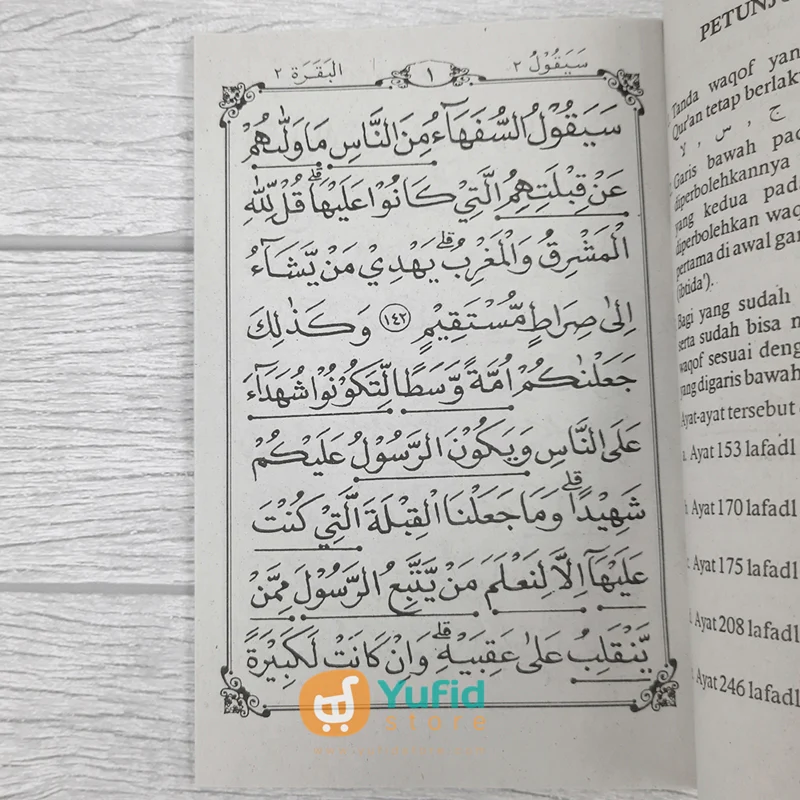 سَيَقُوْلُ ٢
١
البَقَرَة ٢
سَيَقُوْلُ السُّفَهَاۤءُ مِنَ النَّاسِ مَا وَلّٰىهُمْ
عَنْ قِبْلَتِهِمُ الَّتِيْ كَانُوْا عَلَيْهَاۗ قُلْ لِّلّٰهِ
الْمَشْرِقُ وَالْمَغْرِبُۗ يَهْدِيْ مَنْ يَّشَاۤءُ
اِلٰى صِرَاطٍ مُّسْتَقِيْمٍ ١٤٢ وَكَذٰلِكَ
جَعَلْنٰكُمْ اُمَّةً وَّسَطًا لِّتَكُوْنُوْا شُهَدَاۤءَ
عَلَى النَّاسِ وَيَكُوْنَ الرَّسُوْلُ عَلَيْكُمْ
شَهِيْدًاۗ وَمَا جَعَلْنَا الْقِبْلَةَ الَّتِيْ كُنْتَ
عَلَيْهَآ اِلَّا لِنَعْلَمَ مَنْ يَّتَّبِعُ الرَّسُوْلَ مِمَّنْ
يَّنْقَلِبُ عَلٰى عَقِبَيْهِۗ وَاِنْ كَانَتْ لَكَبِيْرَةً
Yufid
store
Tanda waqof yan
Qur'an tetap berlak
ج , س , لا
Garis bawah pad
diperbolehkannya
yang kedua pad
diperbolehkan waq
pertama di awal gar
(ibtida').
Bagi yang sudah
serta sudah bisa m
waqof sesuai deng
yang digaris bawah
Ayat-ayat tersebut
Ayat 153 lafadl
Ayat 170 lafadl
Ayat 175 lafadl
Ayat 208 lafadl
Ayat 246 lafadl